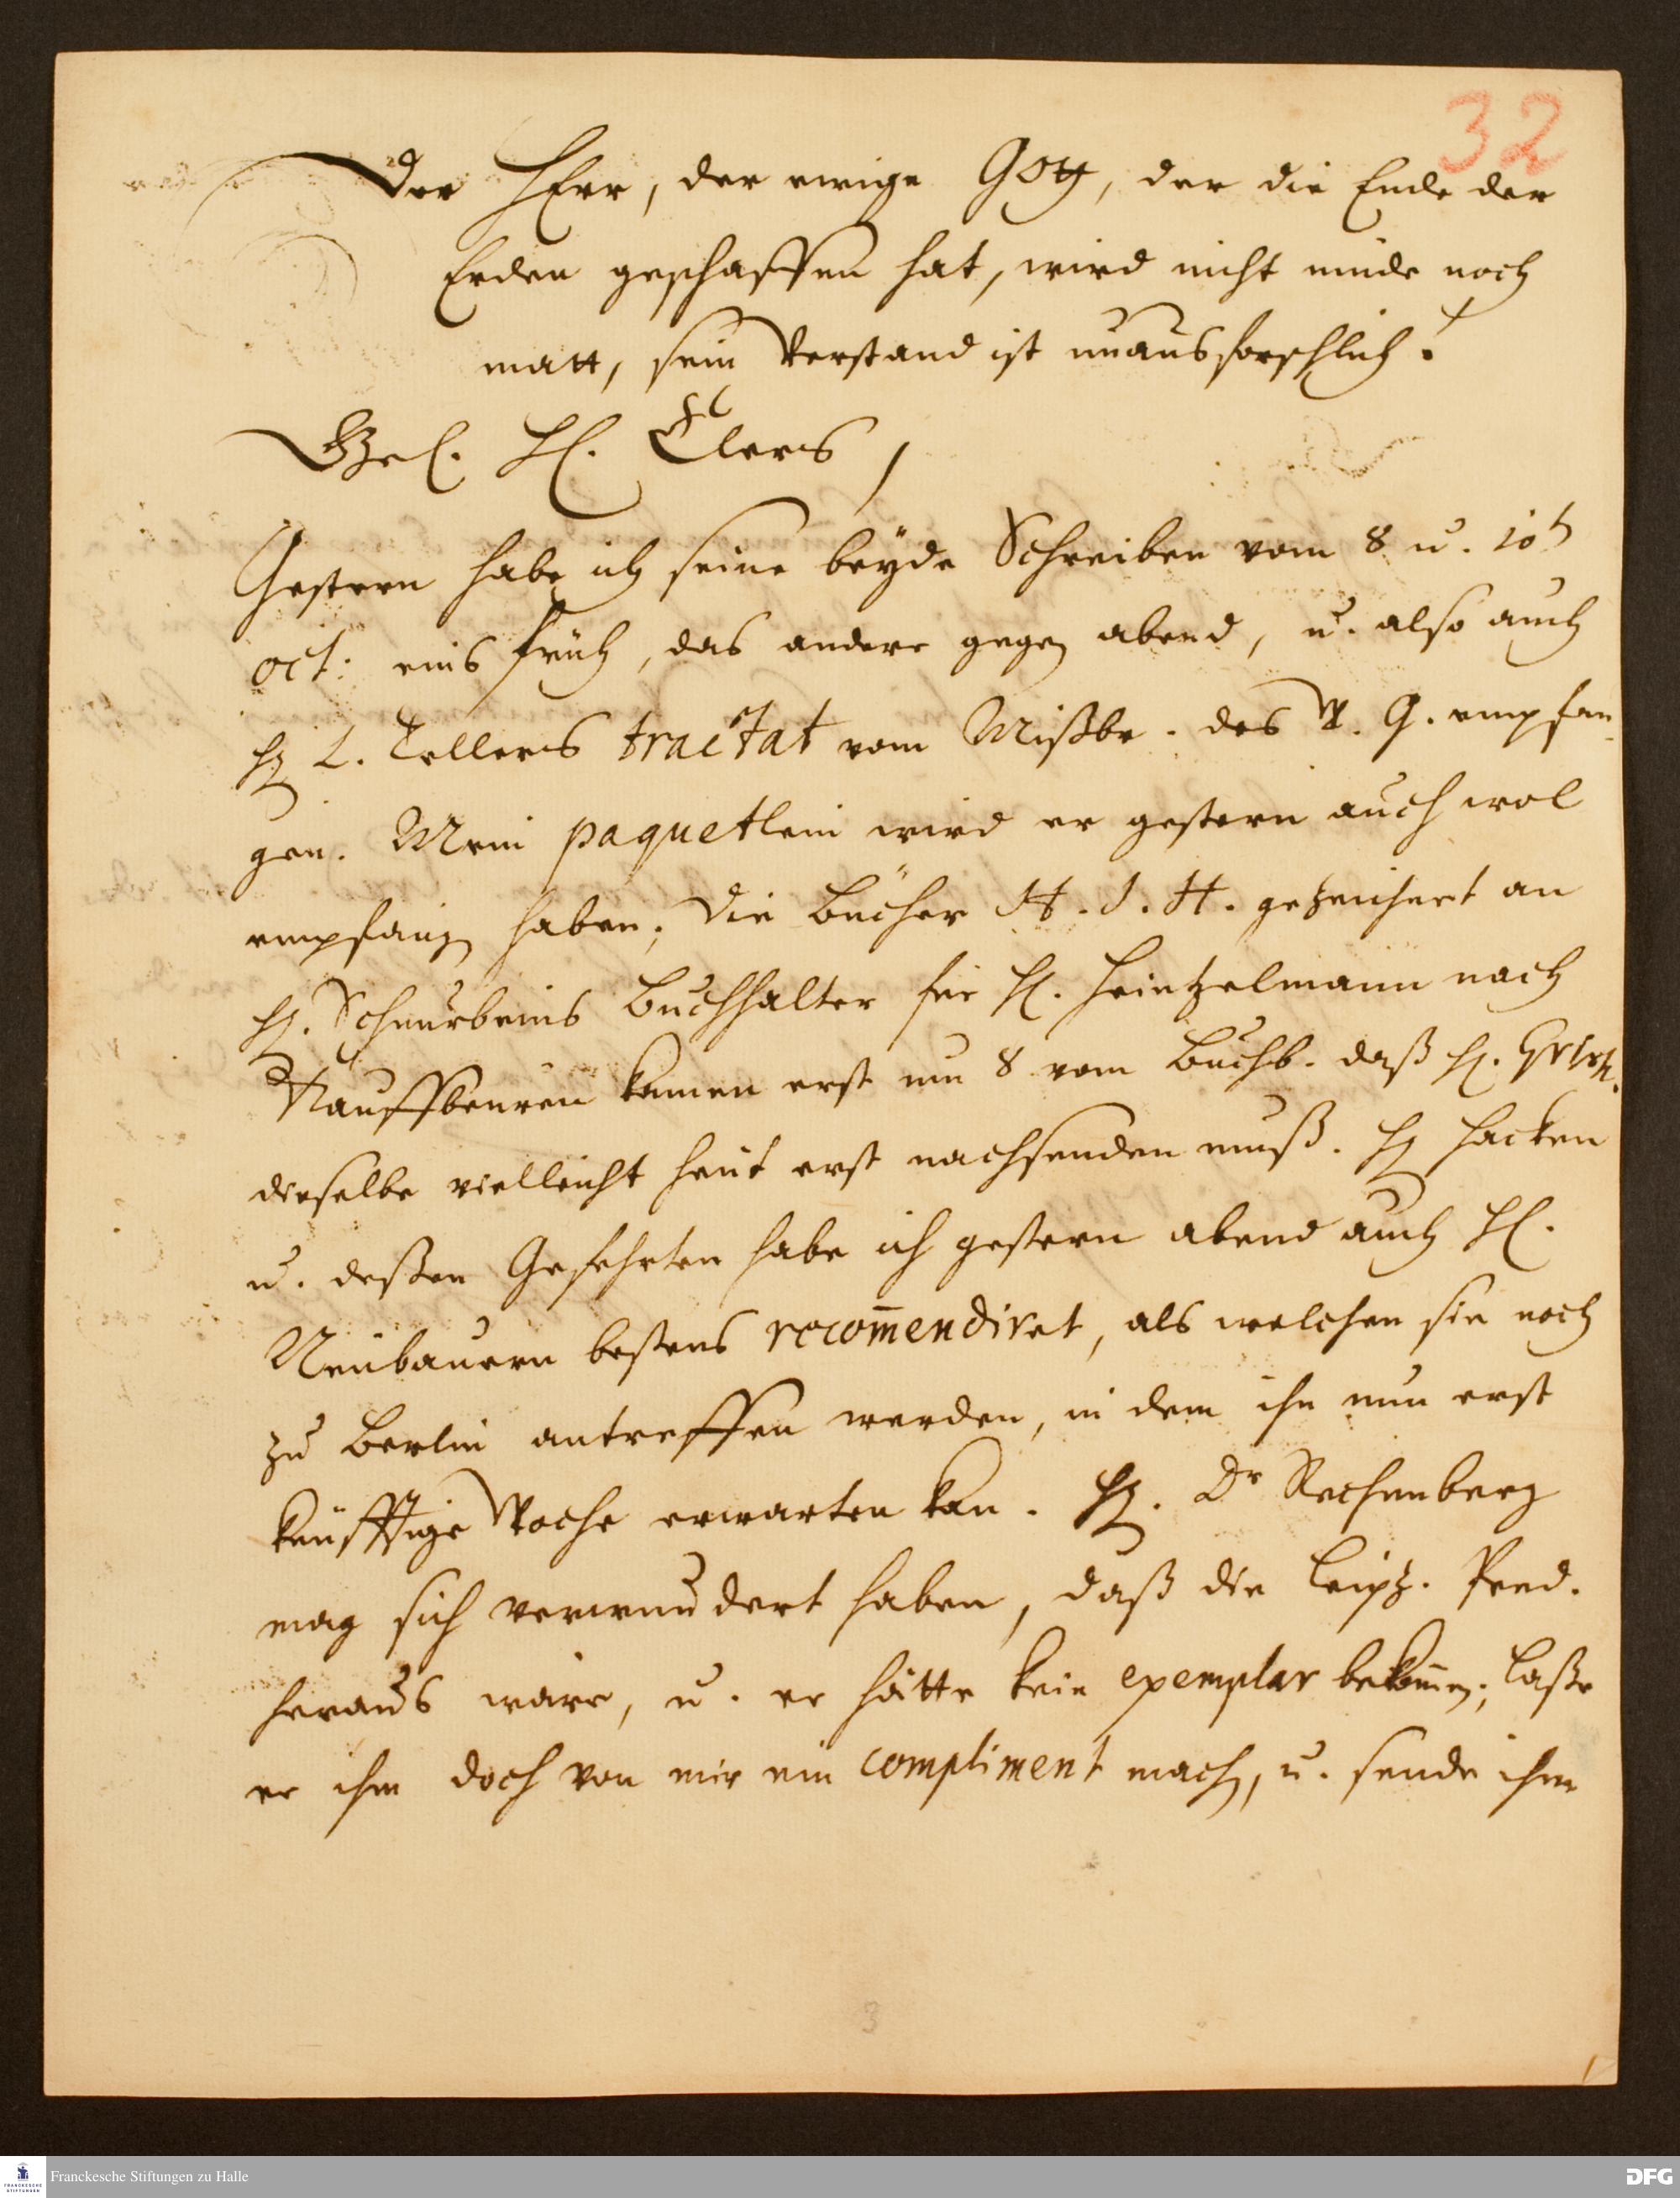 32
Der HErr, der ewige Gott, der die Ende der
Erden geschaffen hat, wird nicht müde noch
matt, sein Verstand ist unausforschlich!
H. Elers,
Gestern habe ich seine beyde Schreiben vom 8 u. 10t
oct: eins früh, das andere gegen abend, u. also auch
H L. Tellers tractat vom Mißbr. des V. G. empfan¬
gen. Mein paquetlein wird er gestern auch wol
empfangen haben; die Bücher H. J. H. gezeichnet an
H. Scheurbeins Buchhalter für H. Heintzelmann nach
Kauffbeuren kamen erst um 8 vom Buchb. daß H.
dieselbe vielleicht heut erst nachsenden muß. H Hacken
u. deßen Gefehrten habe ich gestern abend auch H.
Neubauern bestens recom̅endiret, als welchen sie noch
zu Berlin antreffen werden, in dem ihn nun erst
künfftige Woche erwarten kan. H. Dr Rechenberg
mag sich verwundert haben, daß die Leipz. Pred.
heraus wäre, u. er hätte kein exemplar bekom̅en; laße
er ihm doch von mir ein compliment machen, u. sende ihm
3
Franckesche Stiftungen zu Halle
DFG